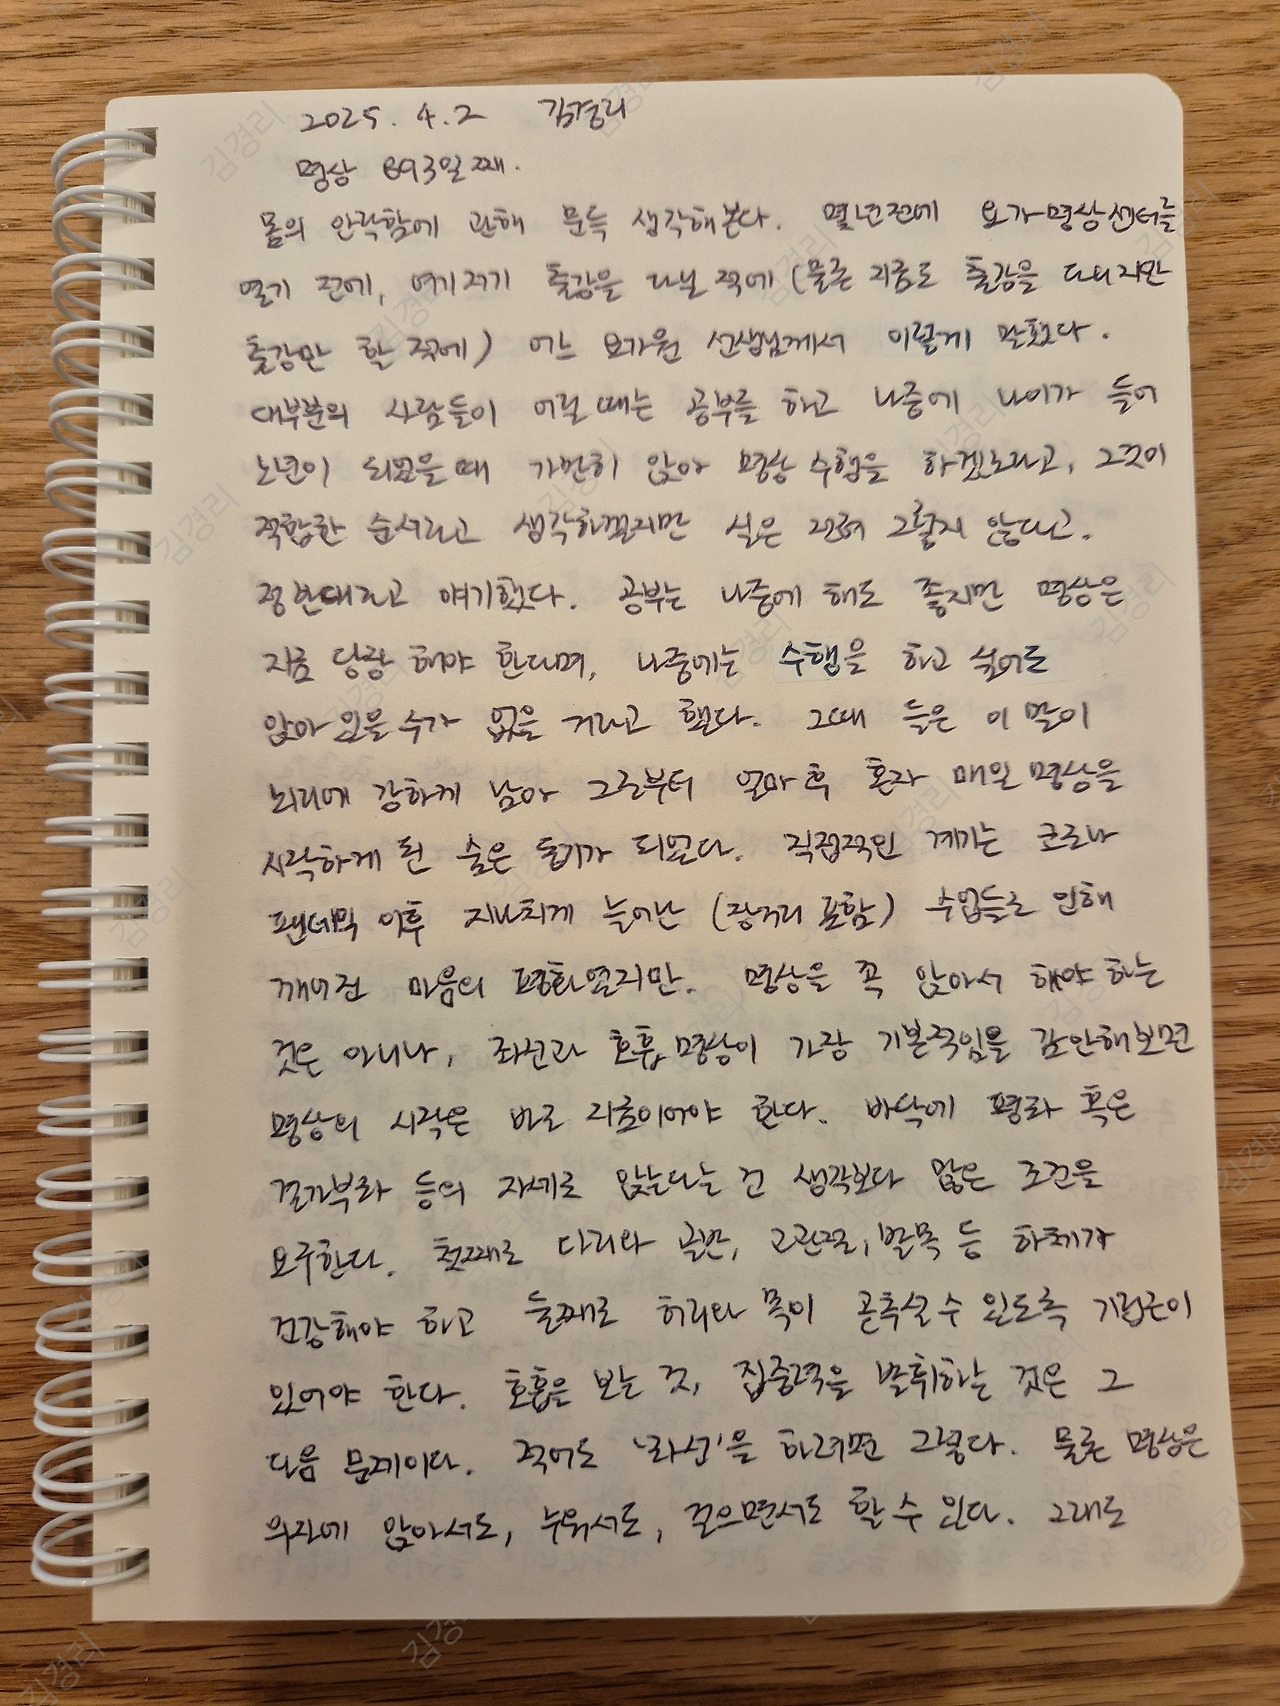 2025. 4. 2 김경리
명상 693일째.
몸의 안락함에 관해 문득 생각해본다. 몇년전에 요가명상센터를
열기 전에, 여기저기 출강을 다닐 적에 (물론 지금도 출강을 다니지만
출강만 할 적에) 어느 요가원 선생님께서 이렇게 말했다.
대부분의 사람들이 어릴 때는 공부를 하고 나중에 나이가 들어
노년이 되었을 때 가만히 앉아 명상 수행을 하겠노라고, 그것이
적합한 순서라고 생각하겠지만 실은 전혀 그렇지 않다고.
정반대라고 얘기했다. 공부는 나중에 해도 좋지만 명상은
지금 당장 해야 한다며, 나중에는 수행을 하고 싶어도
앉아 있을 수가 없을 거라고 했다. 그때 들은 이 말이
뇌리에 강하게 남아 그로부터 얼마 후 혼자 매일 명상을
시작하게 된 숨은 동기가 되었다. 직접적인 계기는 코로나
팬데믹 이후 지나치게 늘어난 (장거리 포함) 수업들로 인해
깨어진 마음의 평화였지만. 명상을 꼭 앉아서 해야 하는
것은 아니나, 좌선과 호흡 명상이 가장 기본적임을 감안해보면
명상의 시작은 바로 지금이어야 한다. 바닥에 평좌 혹은
결가부좌 등의 자세로 앉는다는 건 생각보다 많은 조건을
요구한다. 첫째로 다리와 골반, 고관절, 발목 등 하체가
건강해야 하고 둘째로 허리와 목이 곧추설 수 있도록 기립근이
있어야 한다. 호흡을 보는 것, 집중력을 발휘하는 것은 그
다음 문제이다. 적어도 '좌선'을 하려면 그렇다. 물론 명상은
의자에 앉아서도, 누워서도, 걸으면서도 할 수 있다. 그래도